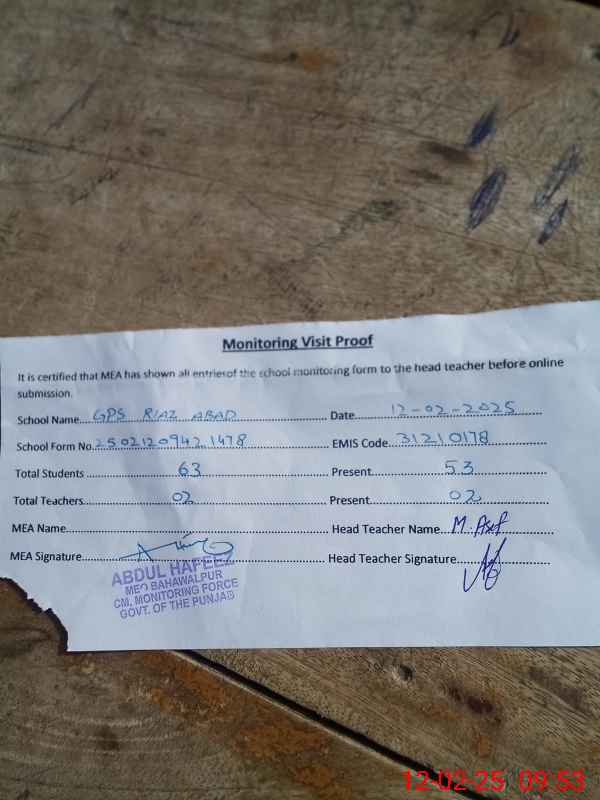 Monitoring Visit Proof
It is certified that MEA has shown all entries of the school monitoring form to the head teacher before online
submission.
School Name....GPS RIAZ ABAD.... Date....12-02-2025....
School Form No.25021209421478.... EMIS Code...31210178....
Total Students ....63.... Present....53....
Total Teachers....02.... Present....02....
MEA Name.... Head Teacher Name...M. Asif....
MEA Signature.... Head Teacher Signature....
ABDUL HAFEEZ
MEO BAHAWALPUR
CM, MONITORING FORCE
GOVT. OF THE PUNJAB
12-02-25 09:53